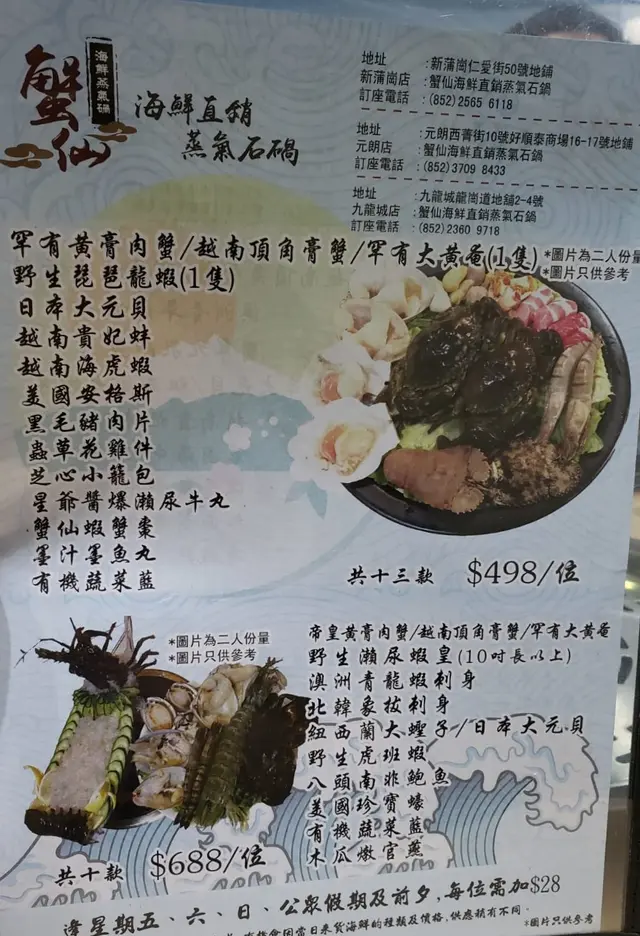 蟹仙
海鮮蒸氣鍋
海鮮直銷
蒸氣石鍋
地址 :新蒲崗仁愛街50號地鋪
新蒲崗店 :蟹仙海鮮直銷蒸氣石鍋
訂座電話 :(852)2565 6118
地址 :元朗西菁街10號好順泰商場16-17號地鋪
元朗店 :蟹仙海鮮直銷蒸氣石鍋
訂座電話 :(852)3709 8433
地址 :九龍城龍崗道地舖2-4號
九龍城店 :蟹仙海鮮直銷蒸氣石鍋
訂座電話 :(852)2360 9718
罕有黃膏肉蟹/越南頂角膏蟹/罕有大黃奄(1隻)
*圖片為二人份量
*圖片只供參考
野生琵琶龍蝦(1隻)
日本大元貝
越南貴妃蚌
越南海虎蝦
美國安格斯
黑毛豬肉片
蟲草花雞件
芝心小籠包
星爺醬爆瀨尿牛丸
蟹仙蝦蟹棗
墨汁墨魚丸
有機蔬菜籃
共十三款 $498/位
*圖片為二人份量
*圖片只供參考
帝皇黃膏肉蟹/越南頂角膏蟹/罕有大黃奄
野生瀨尿蝦皇(10吋長以上)
澳洲青龍蝦刺身
北韓象拔刺身
紐西蘭大蟶子/日本大元貝
野生虎班蝦
八頭南非鮑魚
美國珍寶蠔
有機蔬菜籃
木瓜燉官燕
共十款 $688/位
逢星期五、六、日、公眾假期及前夕,每位需加$28
會因當日來貨海鮮的種類及價格,供應稍有不同。
*圖片只供參考